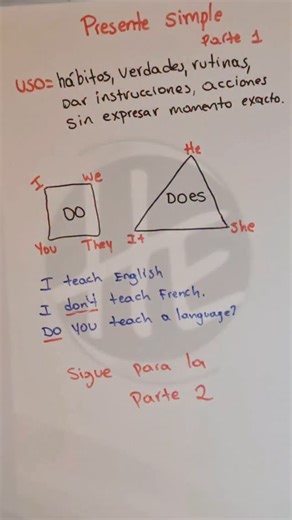 Presente simple
Parte 1
USO= hábitos, verdades, rutinas,
Dar instrucciones, acciones
Sin expresar momento exacto.
He
I We
DO
Does
You They
It
She
I teach English
I don't teach French.
DO you teach a language?
Sigue para la
Parte 2